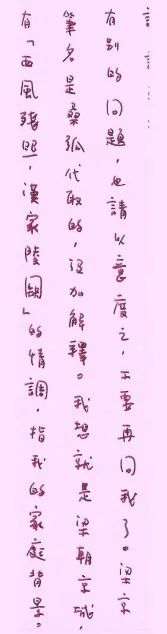 有別的问題，也請以意度之，不要再问我了。梁京
筆名是桑弧代取的，沒加解釋。我想就是梁朝京城，
有「西風殘照，漢家陵闕」的情調，指我的家庭背景。